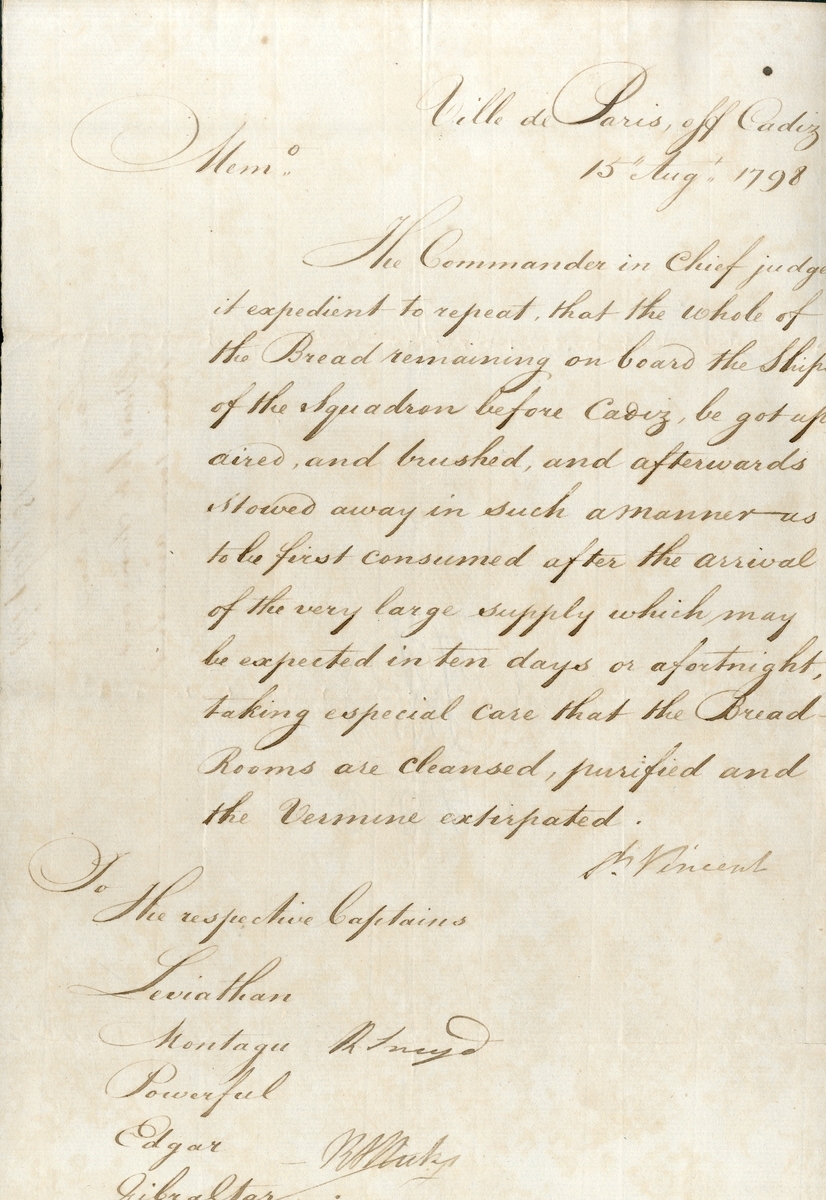 Ville de Paris, off Cadiz
Memo.
15th Augt. 1798
The Commander in Chief judge
it expedient to repeat, that the whole of
the Bread remaining on board the Ship
of the Squadron before Cadiz, be got up
aired, and brushed, and afterwards
stowed away in such a manner as
to be first consumed after the arrival
of the very large supply which may
be expected in ten days or a fortnight,
taking especial care that the Bread-
Rooms are cleansed, purified and
the Vermine extirpated.
St. Vincent
To
The respective Captains
Leviathan
Montagu
Powerful
Edgar
Gibraltar